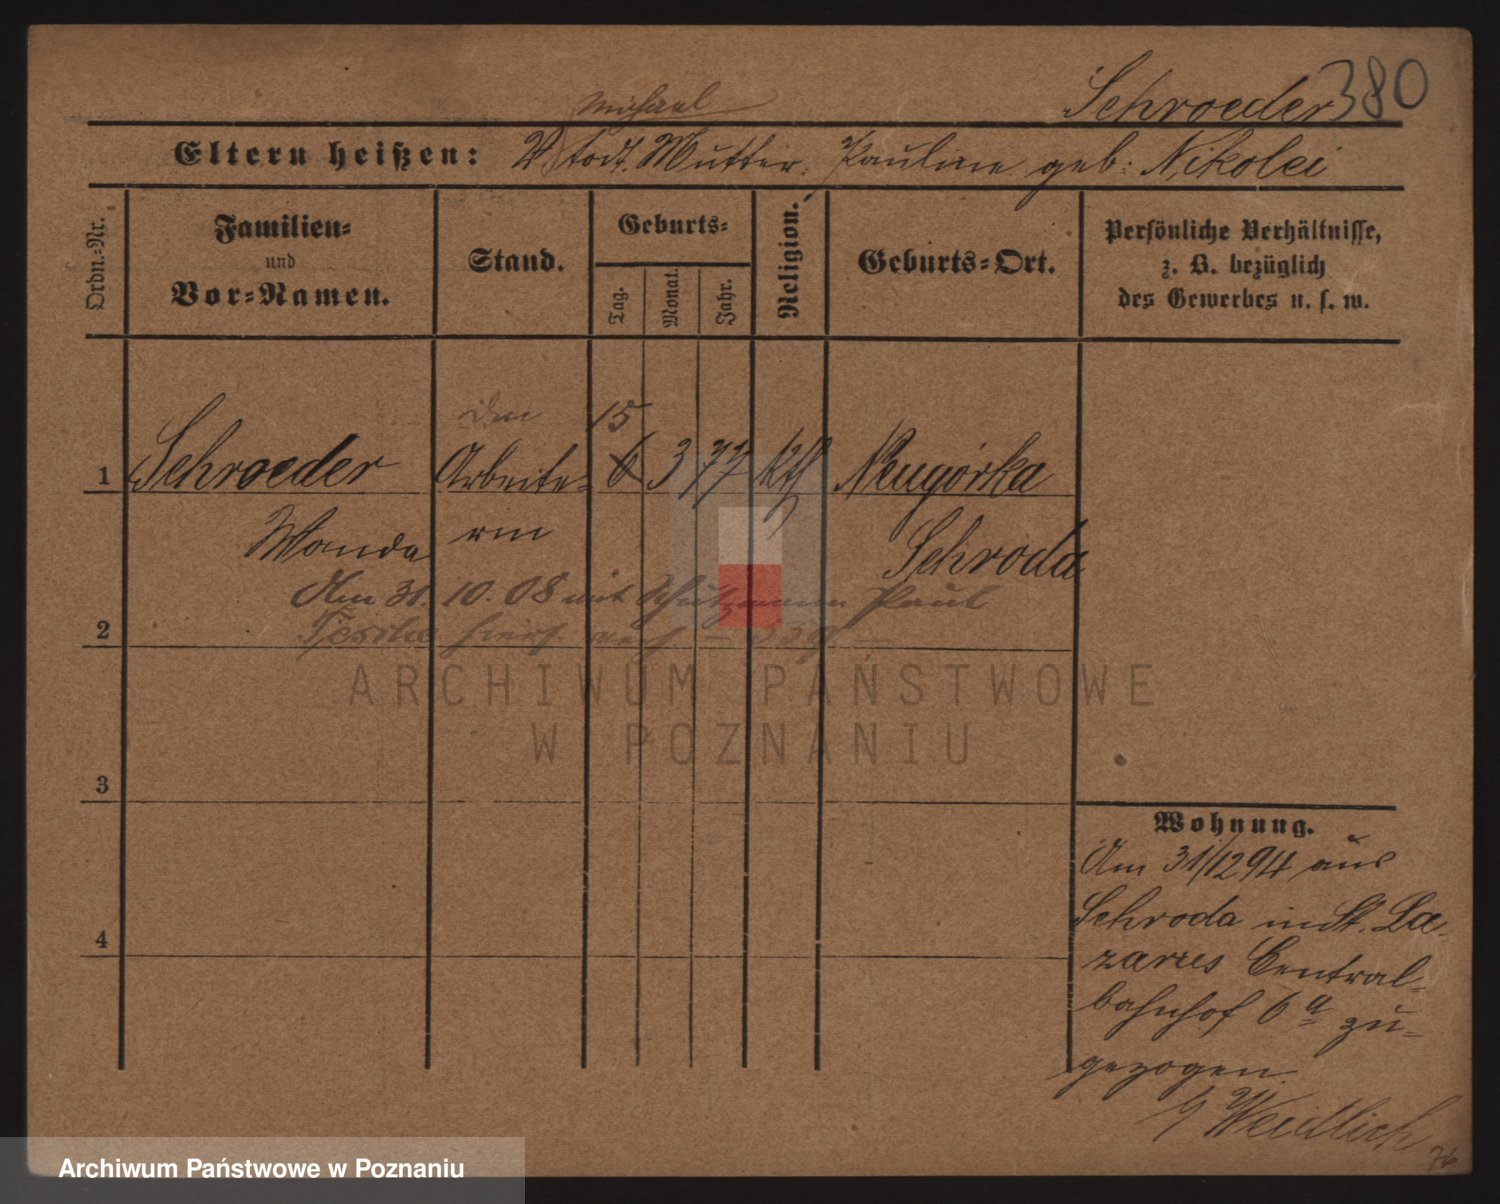 Schroeder 380
Michael
Eltern heißen: V todt. Mutter: Pauline geb: Nikolei
Ordn.-Nr.
Familien-
und
Vor-Namen.
Stand.
Geburts-
Tag.
Monat.
Jahr.
Religion.
Geburts-Ort.
Persönliche Verhältnisse,
z. B. bezüglich
des Gewerbes u. s. w.
15
1 Schroeder Arbeite- 6 3 77 ktl Neugórka
Wanda rin Schroda
Am 31. 10. 08 mit Schutzmann Paul
2 Teschke
3
4
Wohnung.
Am 31/12 94 aus
Schroda in St. La-
zarus Central-
bahnhof 6a zu-
gezogen.
Weidlich
76
ARCHIWUM PAŃSTWOWE
W POZNANIU
Archiwum Państwowe w Poznaniu